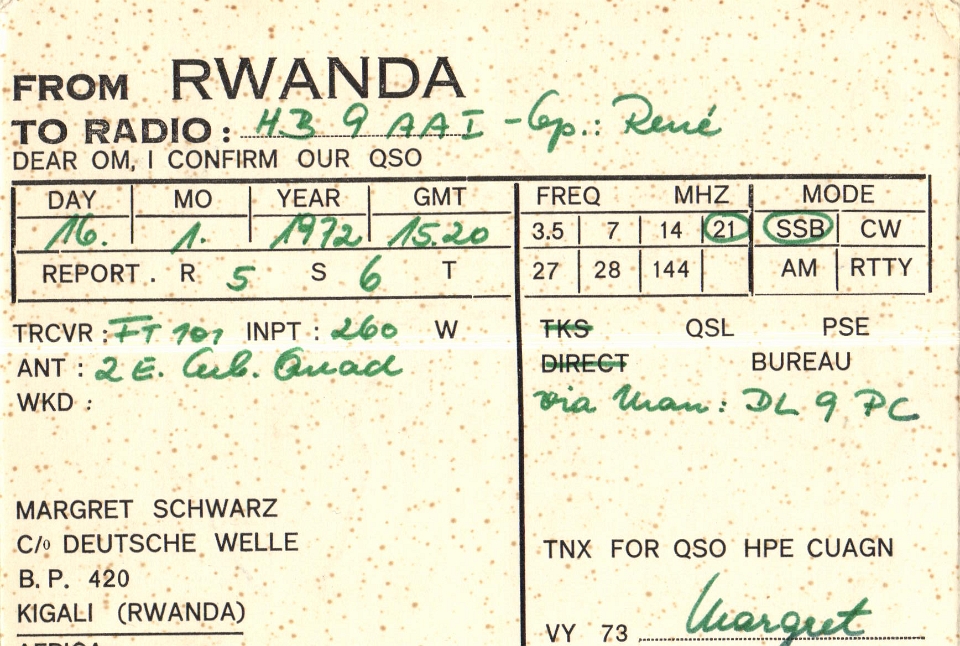 FROM RWANDA
TO RADIO: HB 9 AAI - Op.: René
DEAR OM, I CONFIRM OUR QSO
DAY MO YEAR GMT
16. 1. 1972 15.20
REPORT. R 5 S 6 T
FREQ MHZ MODE
3.5 7 14 21 SSB CW
27 28 144 AM RTTY
TRCVR: FT 101 INPT: 260 W
ANT: 2 E. Cub. Quad
WKD:
TKS QSL PSE
DIRECT BUREAU
via Man: DL 9 PC
MARGRET SCHWARZ
C/o DEUTSCHE WELLE
B.P. 420
KIGALI (RWANDA)
AFRICA
TNX FOR QSO HPE CUAGN
VY 73 Margret